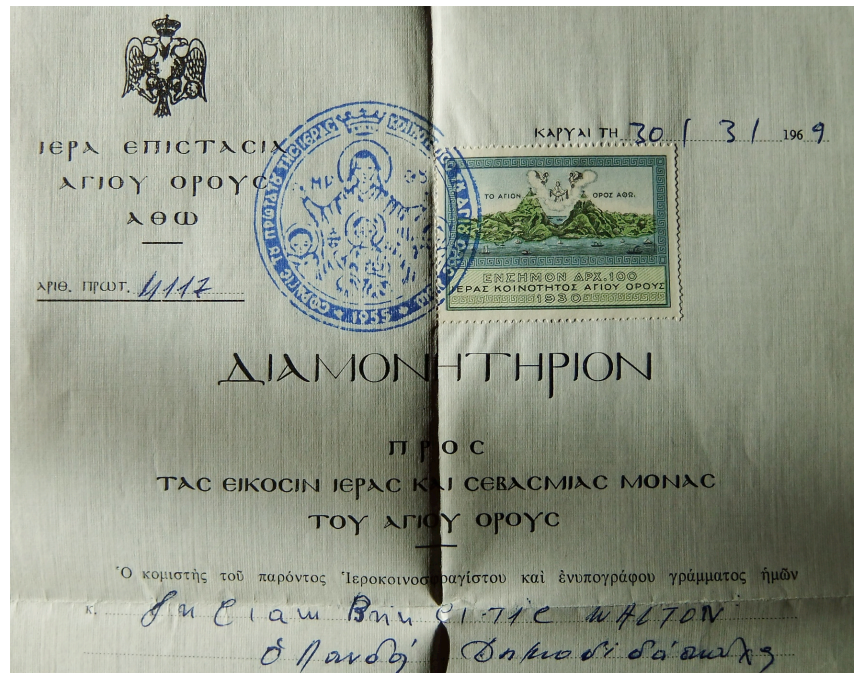 ΙΕΡΑ ΕΠΙCΤΑCΙΑ
ΑΓΙΟΥ ΟΡΟΥC
ΑΘΩ
ΑΡΙΘ. ΠΡΩΤ. 4117
ΚΑΡΥΑΙ ΤΗ 30 / 3 / 1969
1955
ΤΟ ΑΓΙΟΝ ΟΡΟΣ ΑΘΩ.
ΕΝΣΗΜΟΝ ΔΡΧ. 100
ΙΕΡΑΣ ΚΟΙΝΟΤΗΤΟΣ ΑΓΙΟΥ ΟΡΟΥΣ
1930
ΔΙΑΜΟΝΗΤΗΡΙΟΝ
ΠΡΟC
ΤΑC ΕΙΚΟCΙΝ ΙΕΡΑC ΚΑΙ CΕΒΑCΜΙΑC ΜΟΝΑC
ΤΟΥ ΑΓΙΟΥ ΟΡΟΥC
Ὁ κομιστὴς τοῦ παρόντος Ἱεροκοινοσφραγίστου καὶ ἐνυπογράφου γράμματος ἡμῶν
κ.